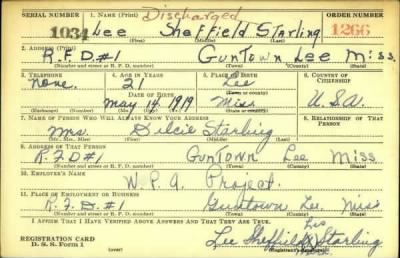 SERIAL NUMBER 1. NAME (Print) Discharged ORDER NUMBER
1034 Lee Sheffield Starling 1266
(First) (Middle) (Last)
2. ADDRESS (Print)
R.F.D#1 Guntown Lee Miss.
(Number and street or R. F. D. number) (Town) (County) (State)
3. TELEPHONE 4. AGE IN YEARS 5. PLACE OF BIRTH 6. COUNTRY OF CITIZENSHIP
None. 21 Lee
DATE OF BIRTH (Town or county)
May 14, 1919 Miss U.S.A.
(Exchange) (Number) (Mo.) (Day) (Yr.) (State or country)
7. NAME OF PERSON WHO WILL ALWAYS KNOW YOUR ADDRESS 8. RELATIONSHIP OF THAT PERSON
Mrs. Dilcie Starling
(Mr., Mrs., Miss) (First) (Middle) (Last)
9. ADDRESS OF THAT PERSON
R.F.D#1 Guntown Lee Miss
(Number and street or R. F. D. number) (Town) (County) (State)
10. EMPLOYER'S NAME
W.P.A. Project
11. PLACE OF EMPLOYMENT OR BUSINESS
R.F.D#1 Guntown Lee. Miss
(Number and street or R. F. D. number) (Town) (County) (State)
I AFFIRM THAT I HAVE VERIFIED ABOVE ANSWERS AND THAT THEY ARE TRUE.
REGISTRATION CARD
D. S. S. Form 1 (over) Lee Sheffield Starling